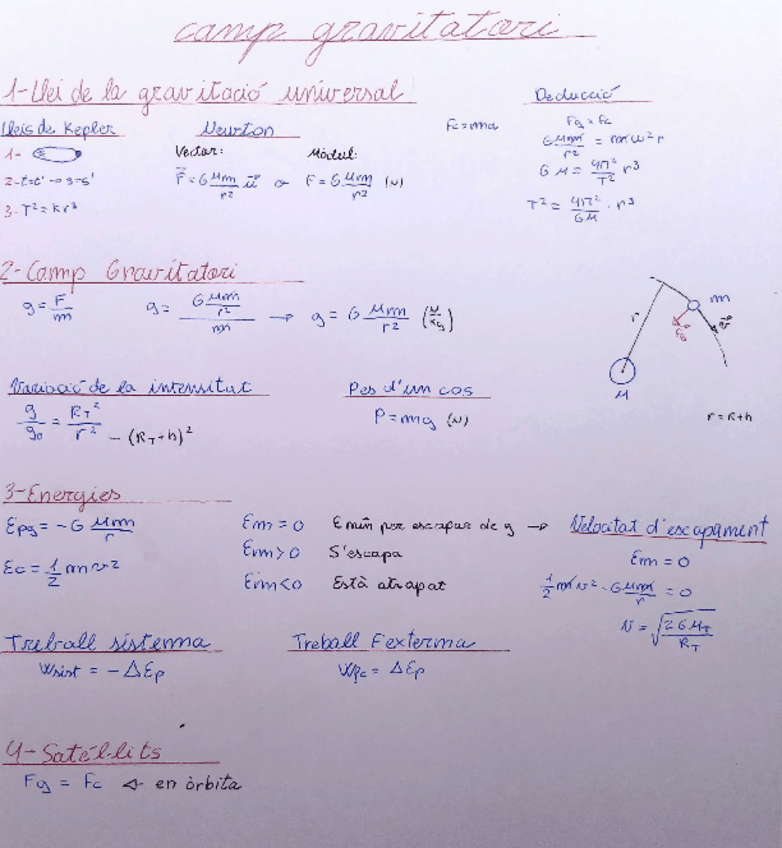 camp gravitatori
1-Llei de la gravitació universal
Lleis de Kepler
1-
2-t=t' → s=s'
3-T²=kr³
Newton
Vector:
F⃗=G Mm/r² u⃗ o
Mòdul:
F=G Mm/r² (N)
Fc=ma
Deducció
Fg=Fc
G Mm/r² = mω²r
G M = 4π²/T² r³
T² = 4π²/GM · r³
2-Camp Gravitatori
g=F/m
g= (G Mm/r²)/m → g= G Mm/r² (N/Kg)
m
r
M
r=R+h
Variació de la intensitat
g/g₀ = R_T²/r² – (R_T+h)²
Pes d'un cos
P=mg (N)
3-Energies
Epg = -G Mm/r
Ec = 1/2 mv²
Em=0 E mín per escapar de g →
Em>0 S'escapa
Em<0 Està atrapat
Velocitat d'escapament
Em=0
1/2 mv² - G Mm/r = 0
v = √(2GM_T/R_T)
Treball sistema
Wsist = -ΔEp
Treball F externa
Wfc = ΔEp
4-Satèl·lits
Fg = Fc ← en òrbita